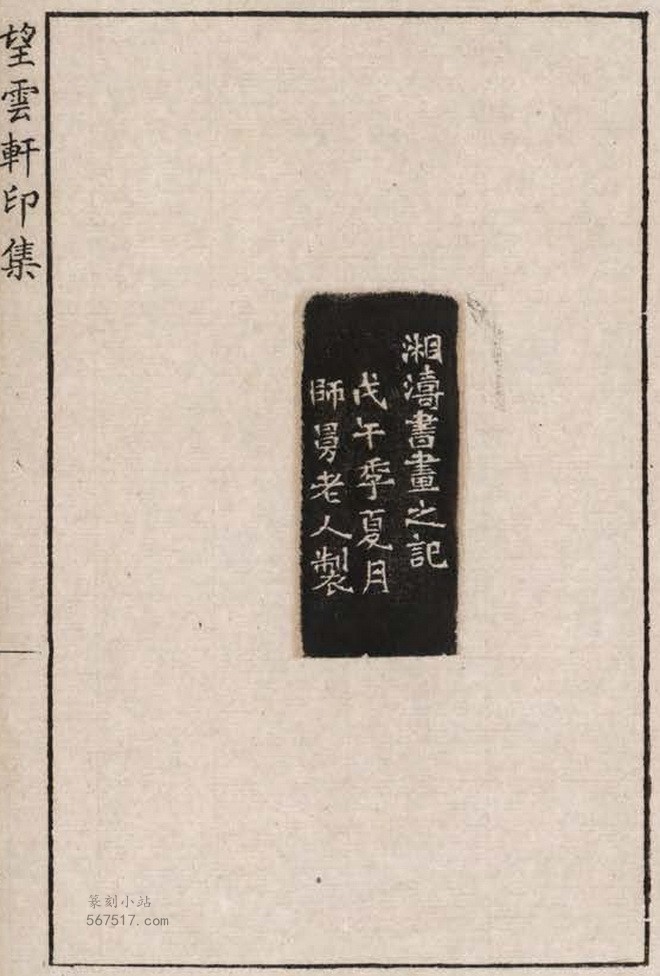 望雲軒印集
湘濤書畫之記
戊午季夏月
師舅老人製
篆刻小站
567517.com